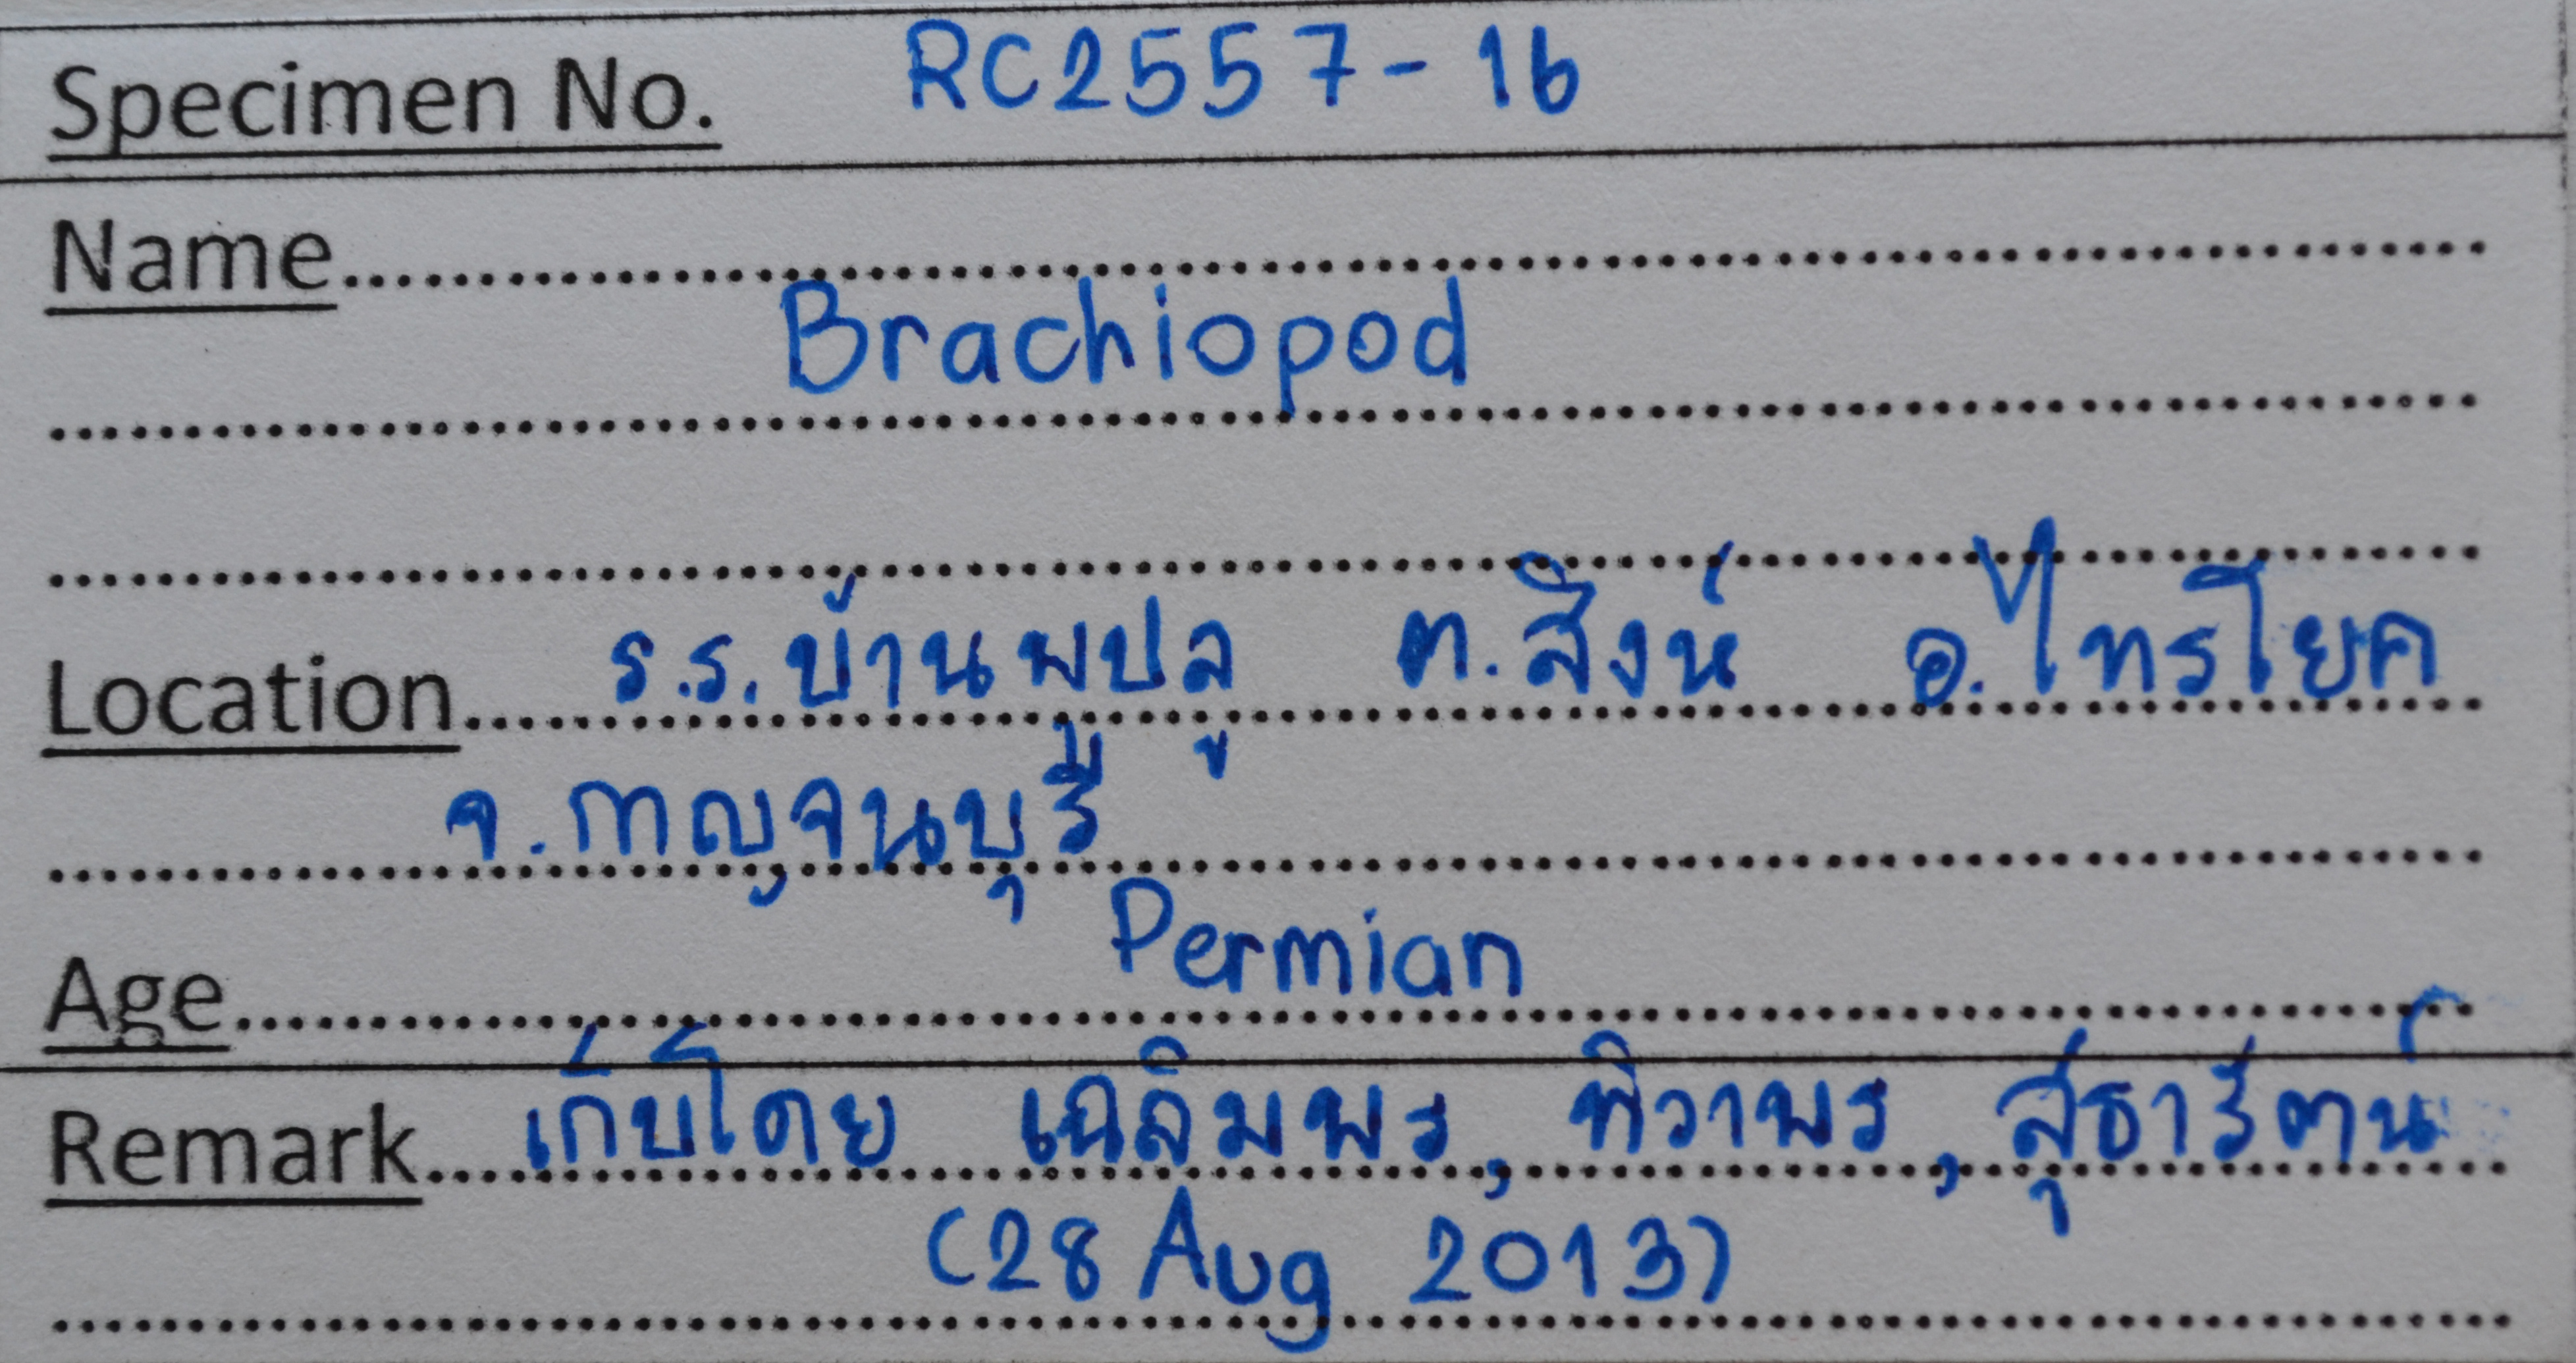 Specimen No. RC2557-16
Name
Brachiopod
Location ร.ร.บ้านพปลู ต.สิงห์ อ.ไทรโยค
จ.กาญจนบุรี
Age Permian
Remark เก็บโดย เฉลิมพร, ทิวาพร, สุธารัตน์
(28 Aug 2013)